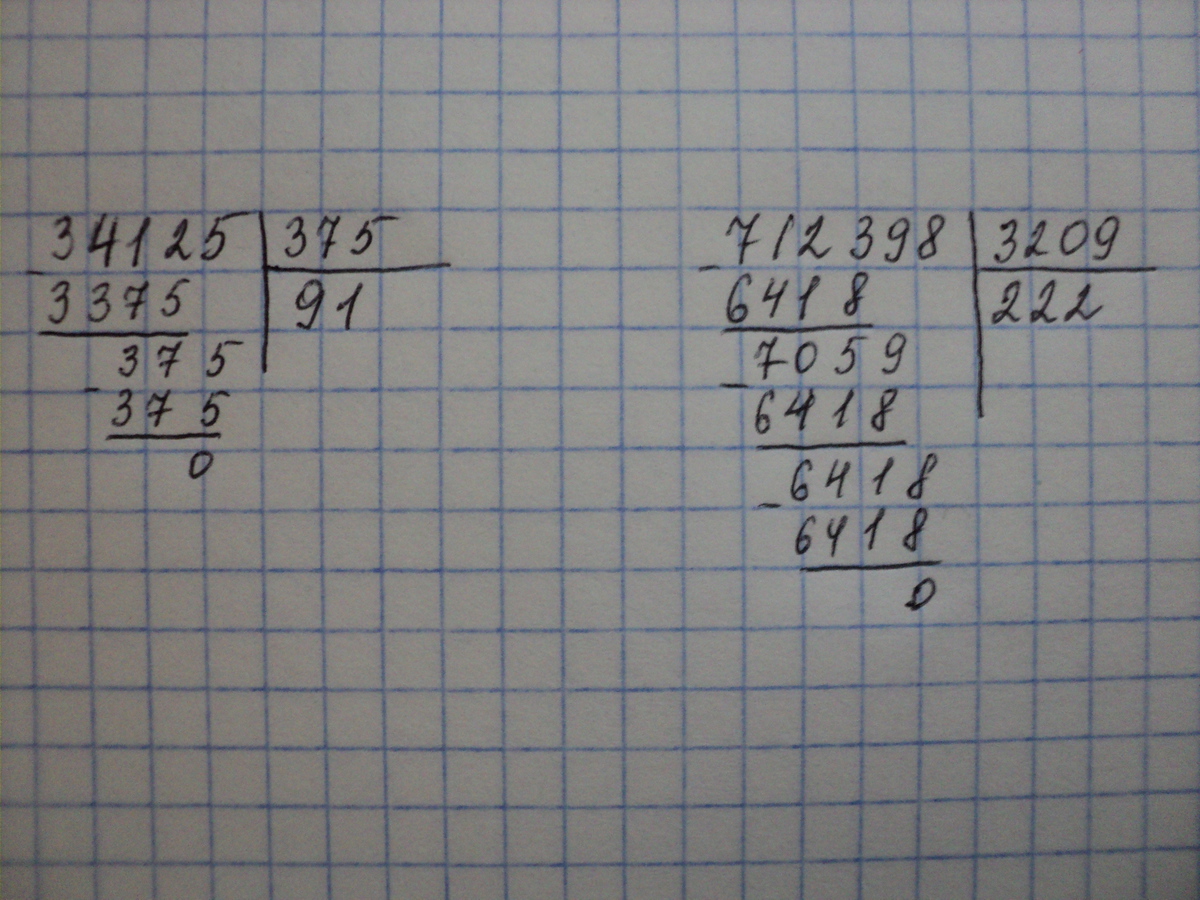 34125 375
- 3375 91
375
- 375
0
712398 3209
- 6418 222
7059
- 6418
6418
- 6418
0